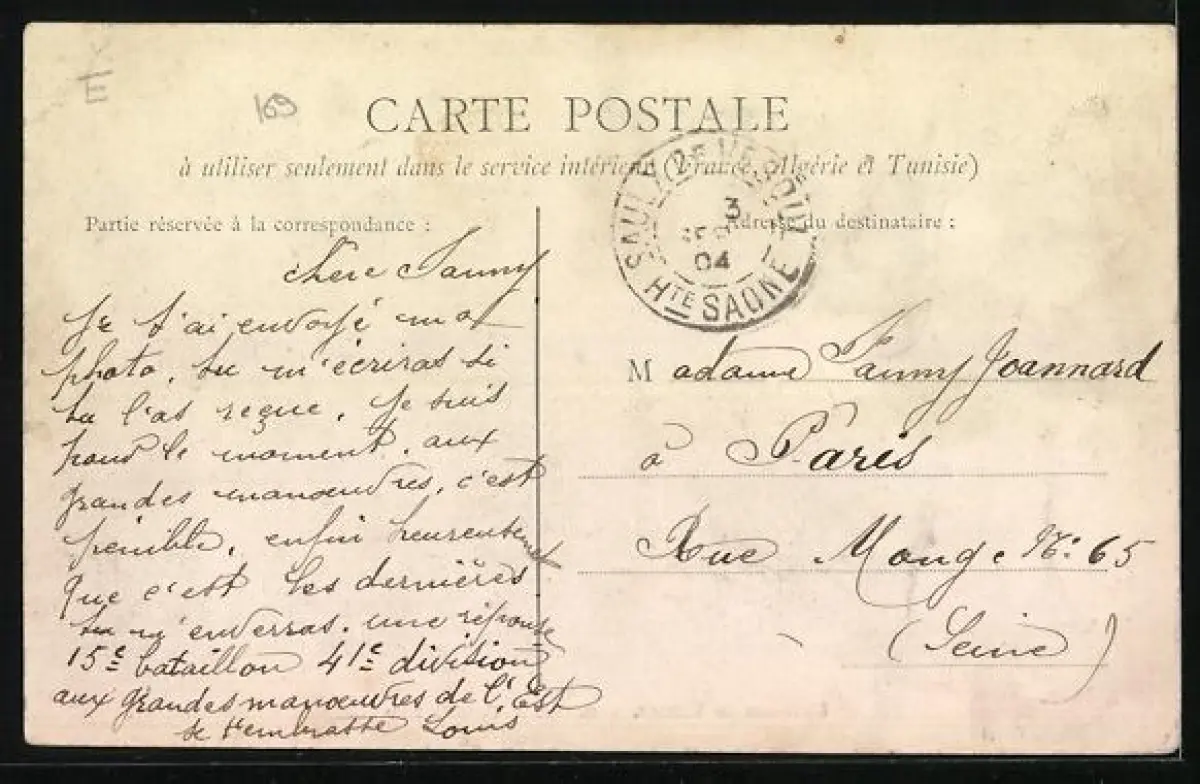 E
169
CARTE POSTALE
à utiliser seulement dans le service intérieur (France, Algérie et Tunisie)
Partie réservée à la correspondance :
chere Fanny
Je t'ai envoyé ma
photo, tu m'écriras si
tu l'as reçue, je suis
pour le moment, aux
grandes manœuvres, c'est
penible, enfin heureusement
que c'est les dernières
tu m'enverras, une réponse
15e bataillon 41e division
aux grandes manœuvres de l'Est
je t'embrasse Louis
SAULX DE VESOUL
3
SEPT
04
HTE SAONE
Adresse du destinataire :
Madame Fanny Joannard
à Paris
Rue Monge No 65
(Seine)